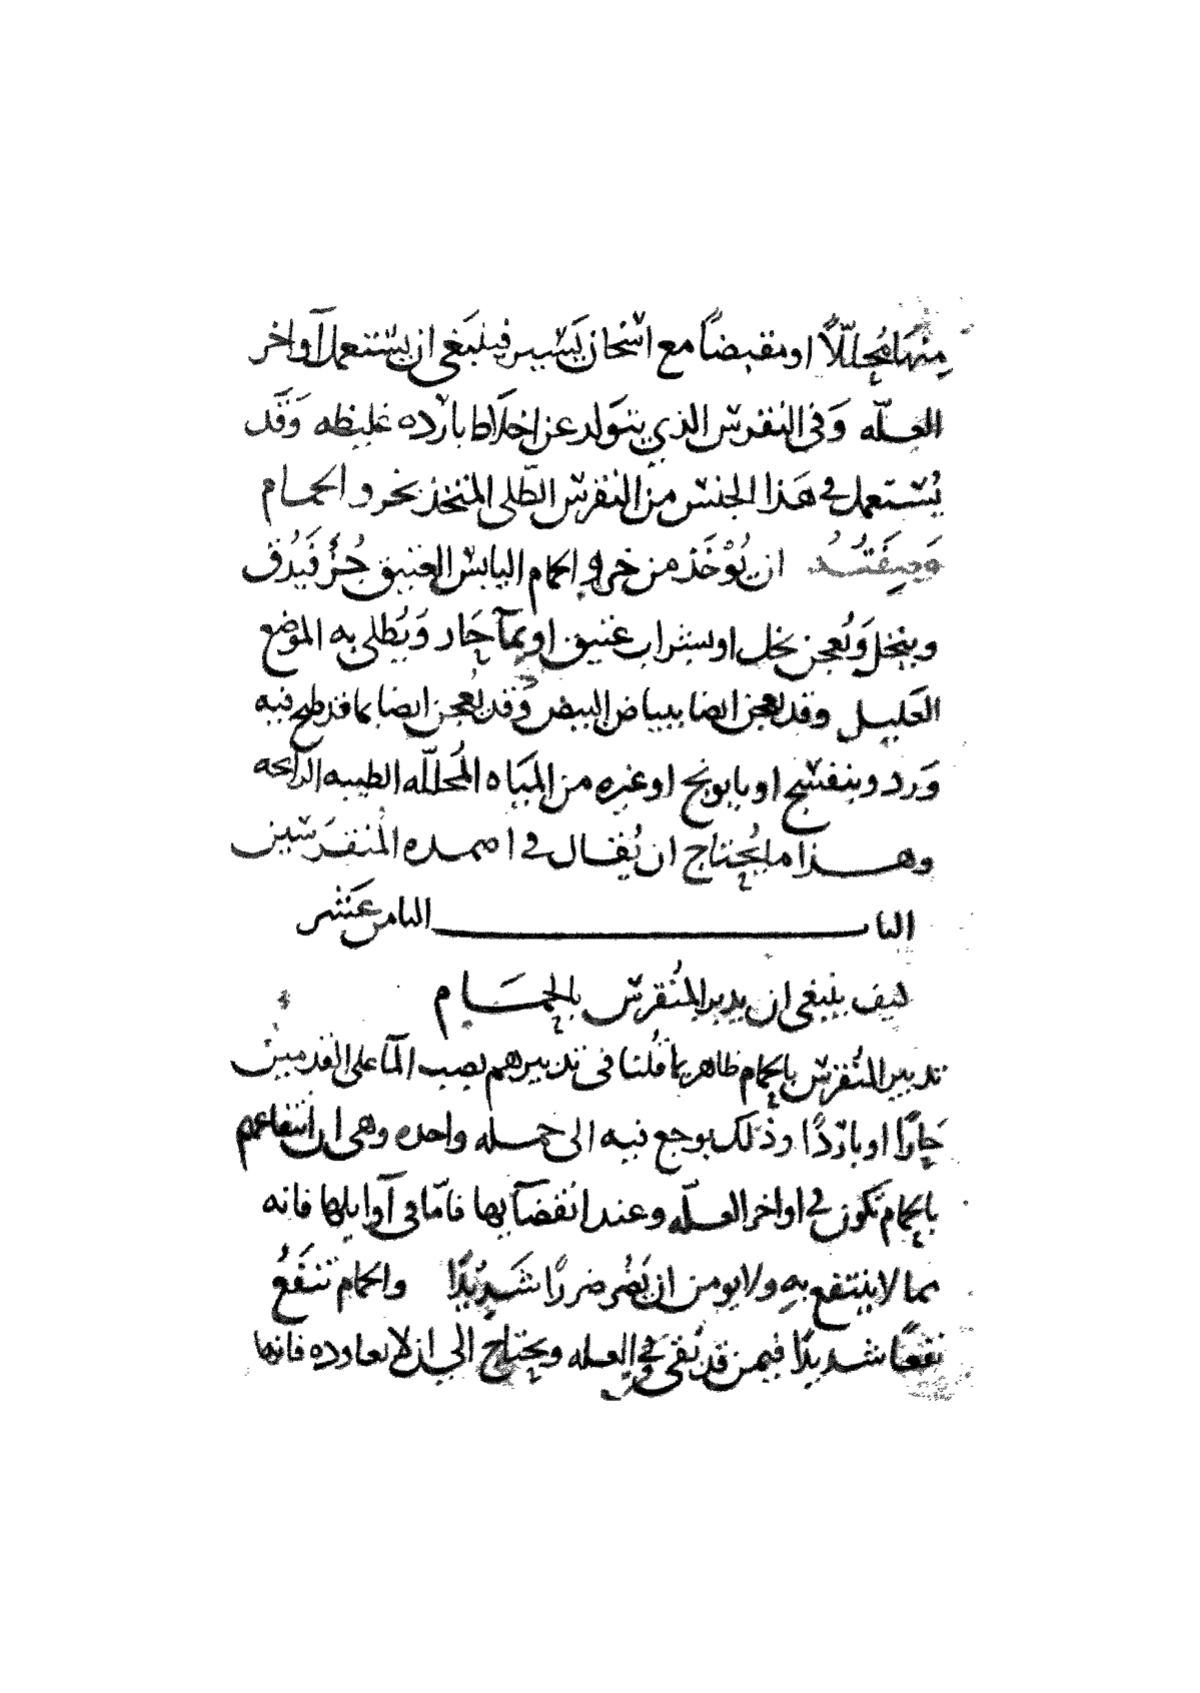 مِنْهَا مُحَلِّلًا او مقبضًا مع اسْخان يَسير فينبَغى ان يستعمل آواخر
العلّه وَفى النقرس الذي يتوَلد عن اخلَاط بارده غليظه وَقَد
يُستعمل في هَذا الجنس من النقرس الطلى المتخذ بخرو الحمام
وَصِفَتُه ان يُوْخَذ من خرو الحمام اليابس العتيق جُزْ فَيُدق
وينخل وَيُعجن بخل او بشراب عتيق او بمآ حَار وَيُطلى به الموضع
العَليل وقد يعجن ايضا ببياض البيض وَقد يُعجن ايضا بما قد طبخ فيه
وَرد وبنفسج او بابونج او غيره من المَياه المُحللّه الطيبه الرايحه
وهذا ما يحُتاج ان يُقال في اضمده المُنقرَسين
البا ب الثامن عَشر
كيف ينبغى ان يدبر المُنقرس بالحمَّام
تدبير المُنقرس بالحمام ظاهر بما قُلنا فى تدبيرهم بصب المآ على القدمين
حَارًا او بارِدًا وذَلك يوجع فيه الى جمله واحده وهى ان انتفاعهم
بالحمام تكون في اواخر العلّه وعند انقضآيها فامّا فى آوايلها فانه
مما لا ينتفع بهِ ولا يومن ان يَضُر ضررًا شَديدًا والحمام تنفَعُ
نفعًا شديدًا فيمن قد نُقى في العله ويحتاج الى ان لا تعاوده فانها